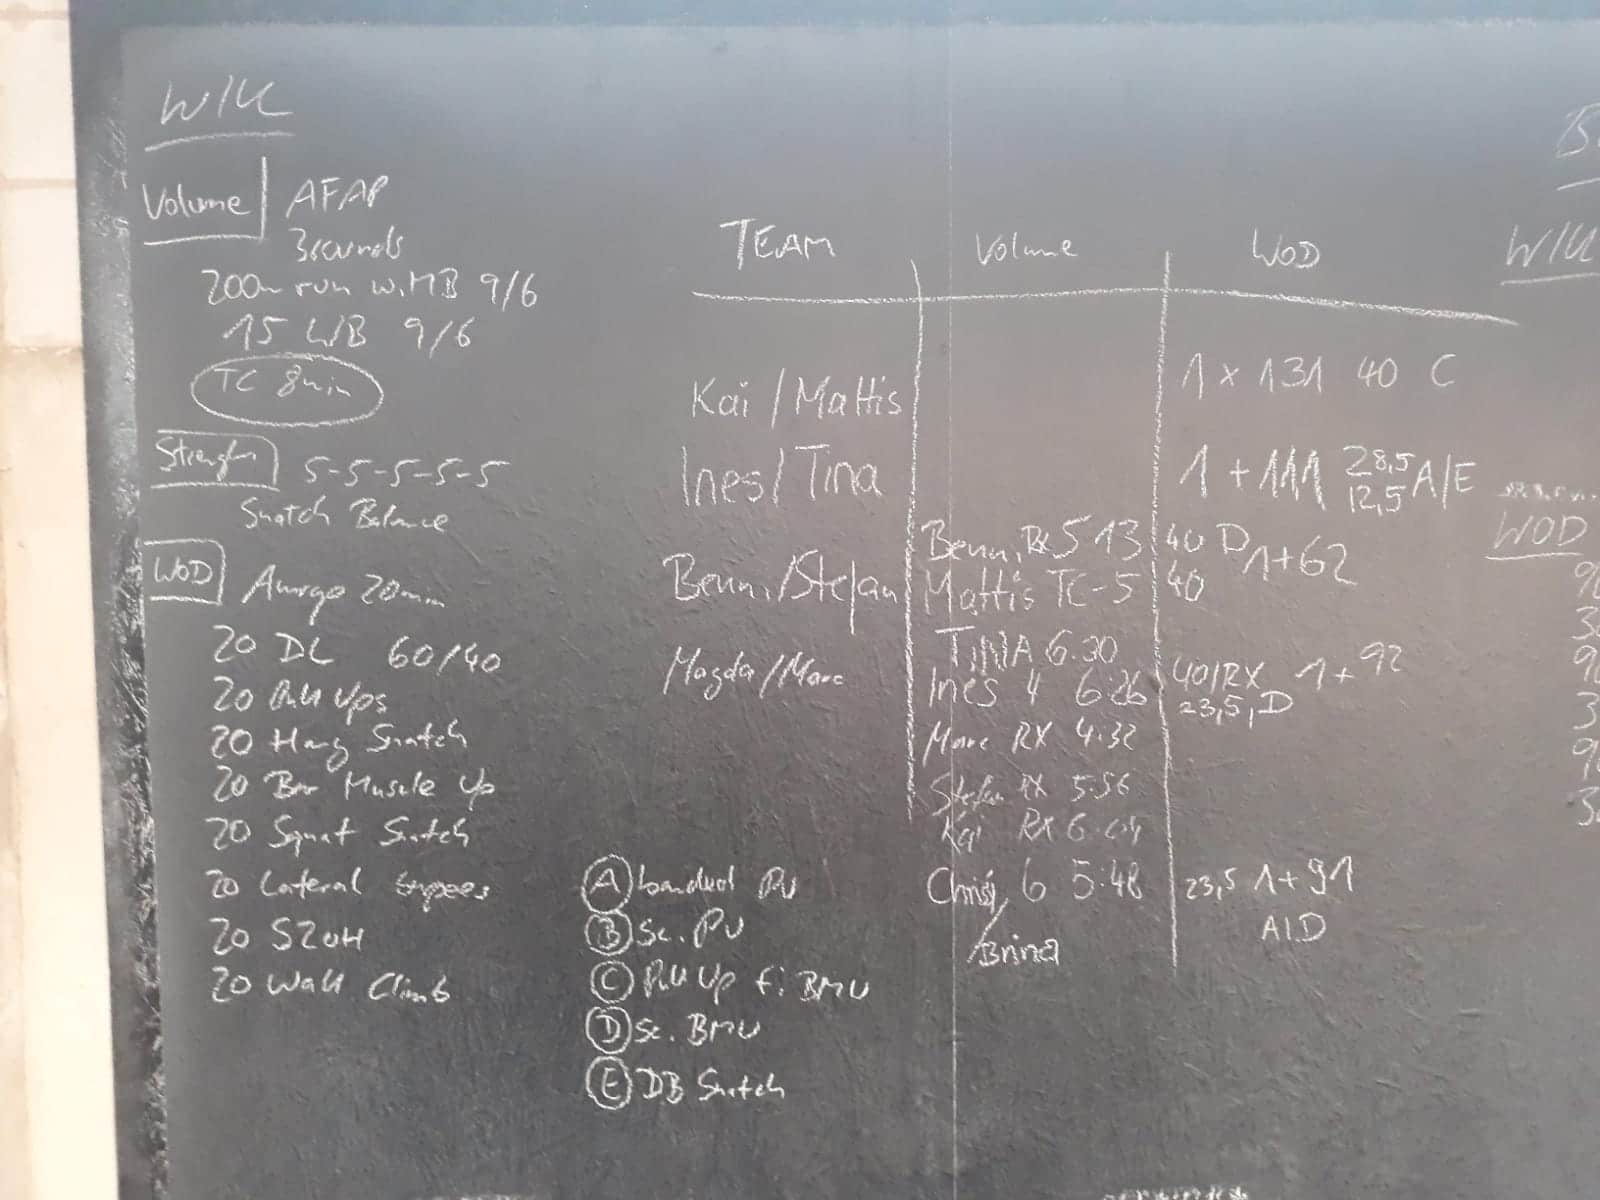 W/U
Volume AFAP
3rounds
200m run w. MB 9/6
15 W/B 9/6
TC 8min
Strength 5-5-5-5-5
Snatch Balance
WOD Amrap 20min
20 DL 60/40
20 Pull Ups
20 Hang Snatch
20 Bar Muscle Up
20 Squat Snatch
20 Lateral Burpees
20 S2OH
20 Wall Climb
A banded PU
B Sc. PU
C Pull Up f. BMU
D Sc. BMU
E DB Snatch
TEAM Volume WOD
Kai / Mattis 1 x 131 40 C
Ines / Tina 1 + 111 28,5 12,5 A/E
Benni/Stefan
Magda/Marc
Benni Rx 5 13 40 D 1+62
Mattis TC-5 40
TINA 6.30
Ines 4 6:26 40/RX 1+92
23,5, D
Marc RX 4:32
Stefan RX 5:56
Kai Rx 6:04
Chrisi 6 5:48 23,5 1+91
/Brina A/D
W/U
WOD